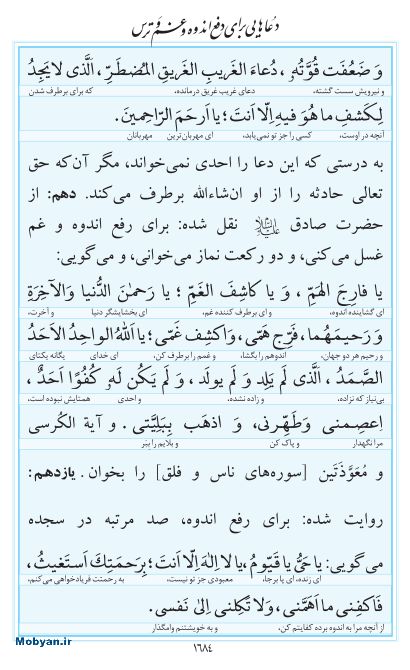 دعاهایی برای دفع اندوه و غم و ترس
وَ ضَعُفَت قُوَّتُهُ، دُعاءَ الغَریبِ الغَریقِ المُضطَرِّ، اَلَّذی لا یَجِدُ
و نیرویش سست گشته، دعای غریب غریق درمانده، که برای برطرف شدن
لِکَشفِ ما هُوَ فیهِ اِلّا اَنتَ؛ یا اَرحَمَ الرّاحِمینَ.
آنچه در اوست، کسی را جز تو نمی‌یابد، ای مهربان‌ترین مهربانان
به درستی که این دعا را احدی نمی‌خواند، مگر آن‌که حق
تعالی حادثه را از او ان‌شاءالله برطرف می‌کند. دهم: از
حضرت صادق علیه‌السلام نقل شده: برای رفع اندوه و غم
غسل می‌کنی، و دو رکعت نماز می‌خوانی، و می‌گویی:
یا فارِجَ الهَمِّ، وَ یا کاشِفَ الغَمِّ؛ یا رَحمٰنَ الدُّنیا وَالآخِرَةِ
ای گشاینده اندوه، و ای برطرف کننده غم، ای بخشایشگر دنیا و آخرت،
وَ رَحیمَهُما، فَرِّج هَمّی، وَاکشِف غَمّی؛ یا اَللّٰهُ الواحِدُ الاَحَدُ
و رحیم هر دو جهان، اندوهم را بگشا، و غمم را برطرف کن، ای خدای یگانه یکتای
الصَّمَدُ، اَلَّذی لَم یَلِد وَ لَم یولَد، وَ لَم یَکُن لَهُ کُفُوًا اَحَدٌ،
بی‌نیاز که نزاده، و زاده نشده، و احدی همتایش نبوده است،
اِعصِمنی وَطَهِّرنی، وَ اذهَب بِبَلِیَّتی. و آیة الکُرسی
مرا نگهدار و پاک کن و بلایم را ببَر
و مُعَوَّذَتَین [سوره‌های ناس و فلق] را بخوان. یازدهم:
روایت شده: برای رفع اندوه، صد مرتبه در سجده
می‌گویی: یا حَیُّ یا قَیّومُ، یا لا اِلٰهَ اِلّا اَنتَ؛ بِرَحمَتِکَ اَستَغیثُ،
ای زنده، ای پا برجا، معبودی جز تو نیست، به رحمتت فریادخواهی می‌کنم،
فَاکفِنی ما اَهَمَّنی، وَلا تَکِلنی اِلیٰ نَفسی.
از آنچه مرا به اندوه برده کفایتم کن. و به خویشتنم وامگذار
Mobyan.ir
۱۶۸۴